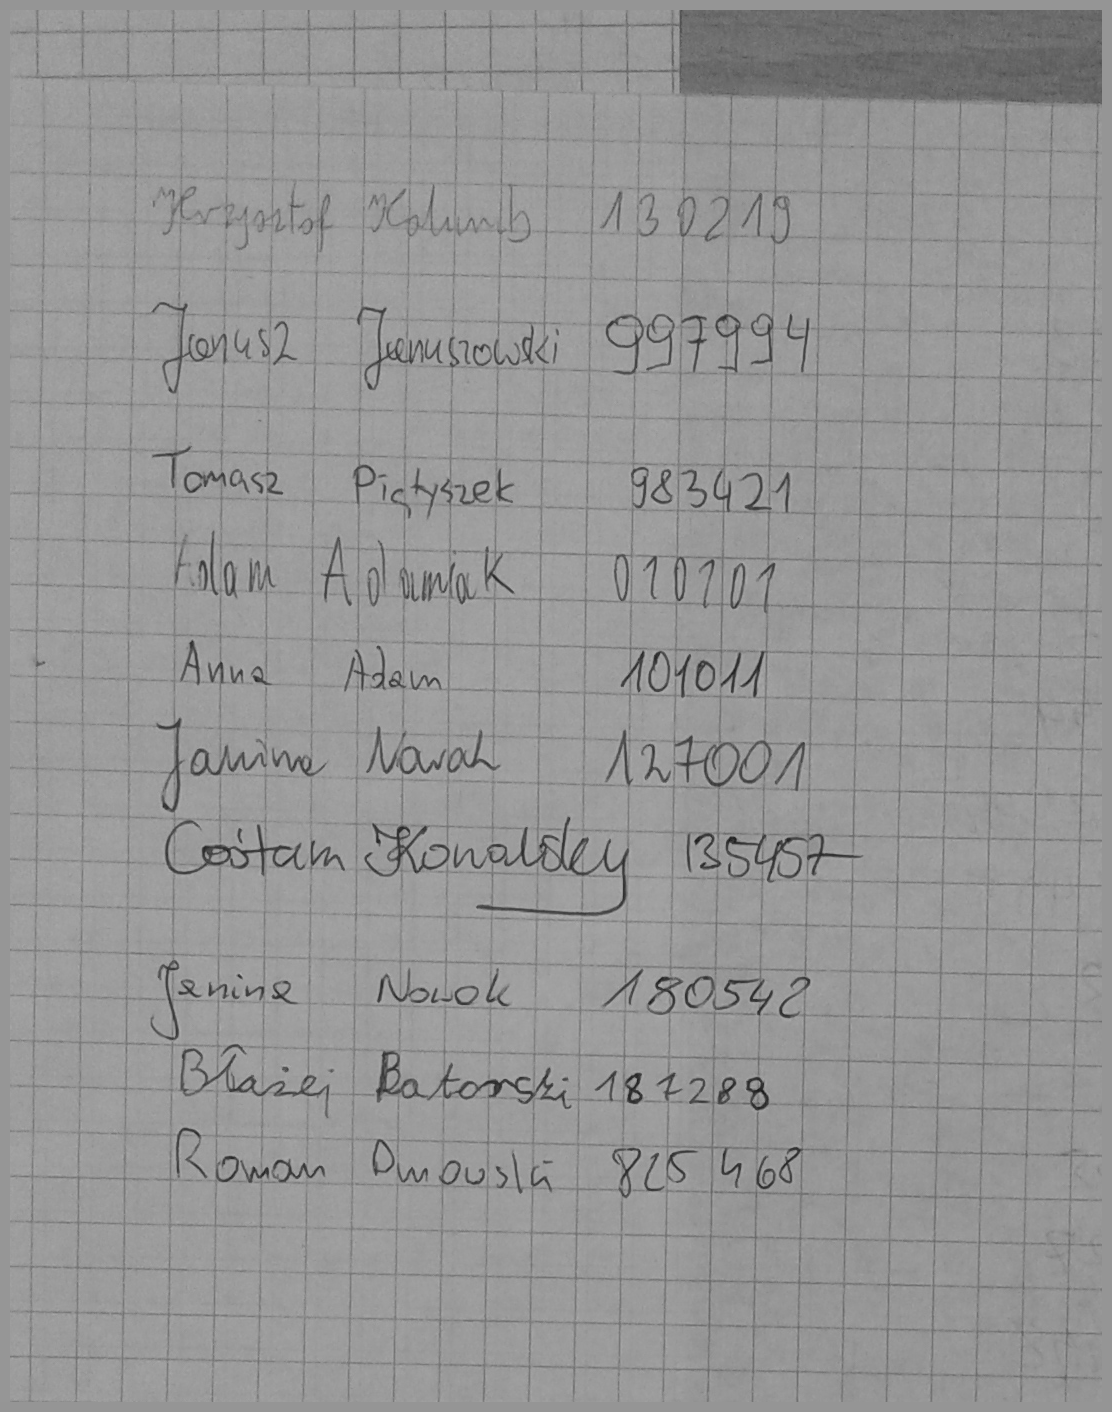 Krzysztof Kolumb 130219
Janusz Januszowski 997994
Tomasz Piątyszek 983421
Adam Adamiak 010101
Anna Adam 101011
Janina Nowak 127001
Cośtam Kowalsky 135457
Janina Nowak 180542
Błażej Batorski 187288
Roman Dmowski 825468